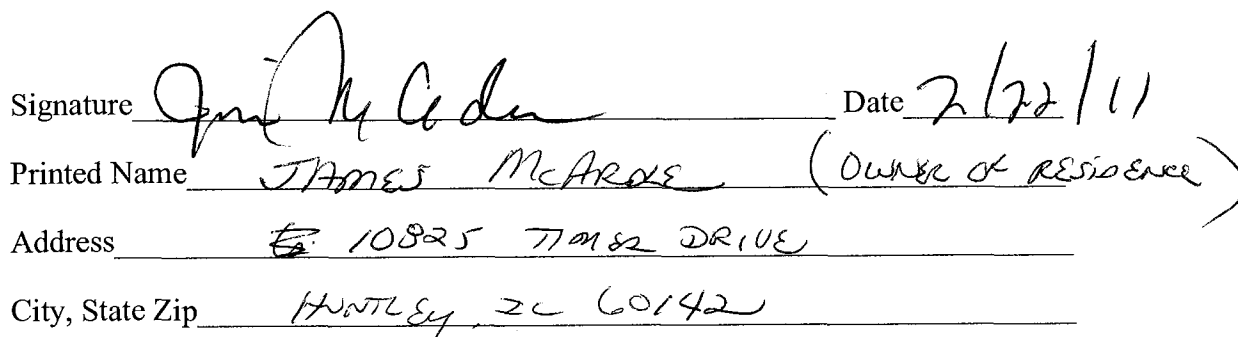 Signature Jim McArdle Date 2/22/11
Printed Name JAMES McARDLE (OWNER OF RESIDENCE)
Address 10825 DRIVE
City, State Zip HUNTLEY, IL 60142